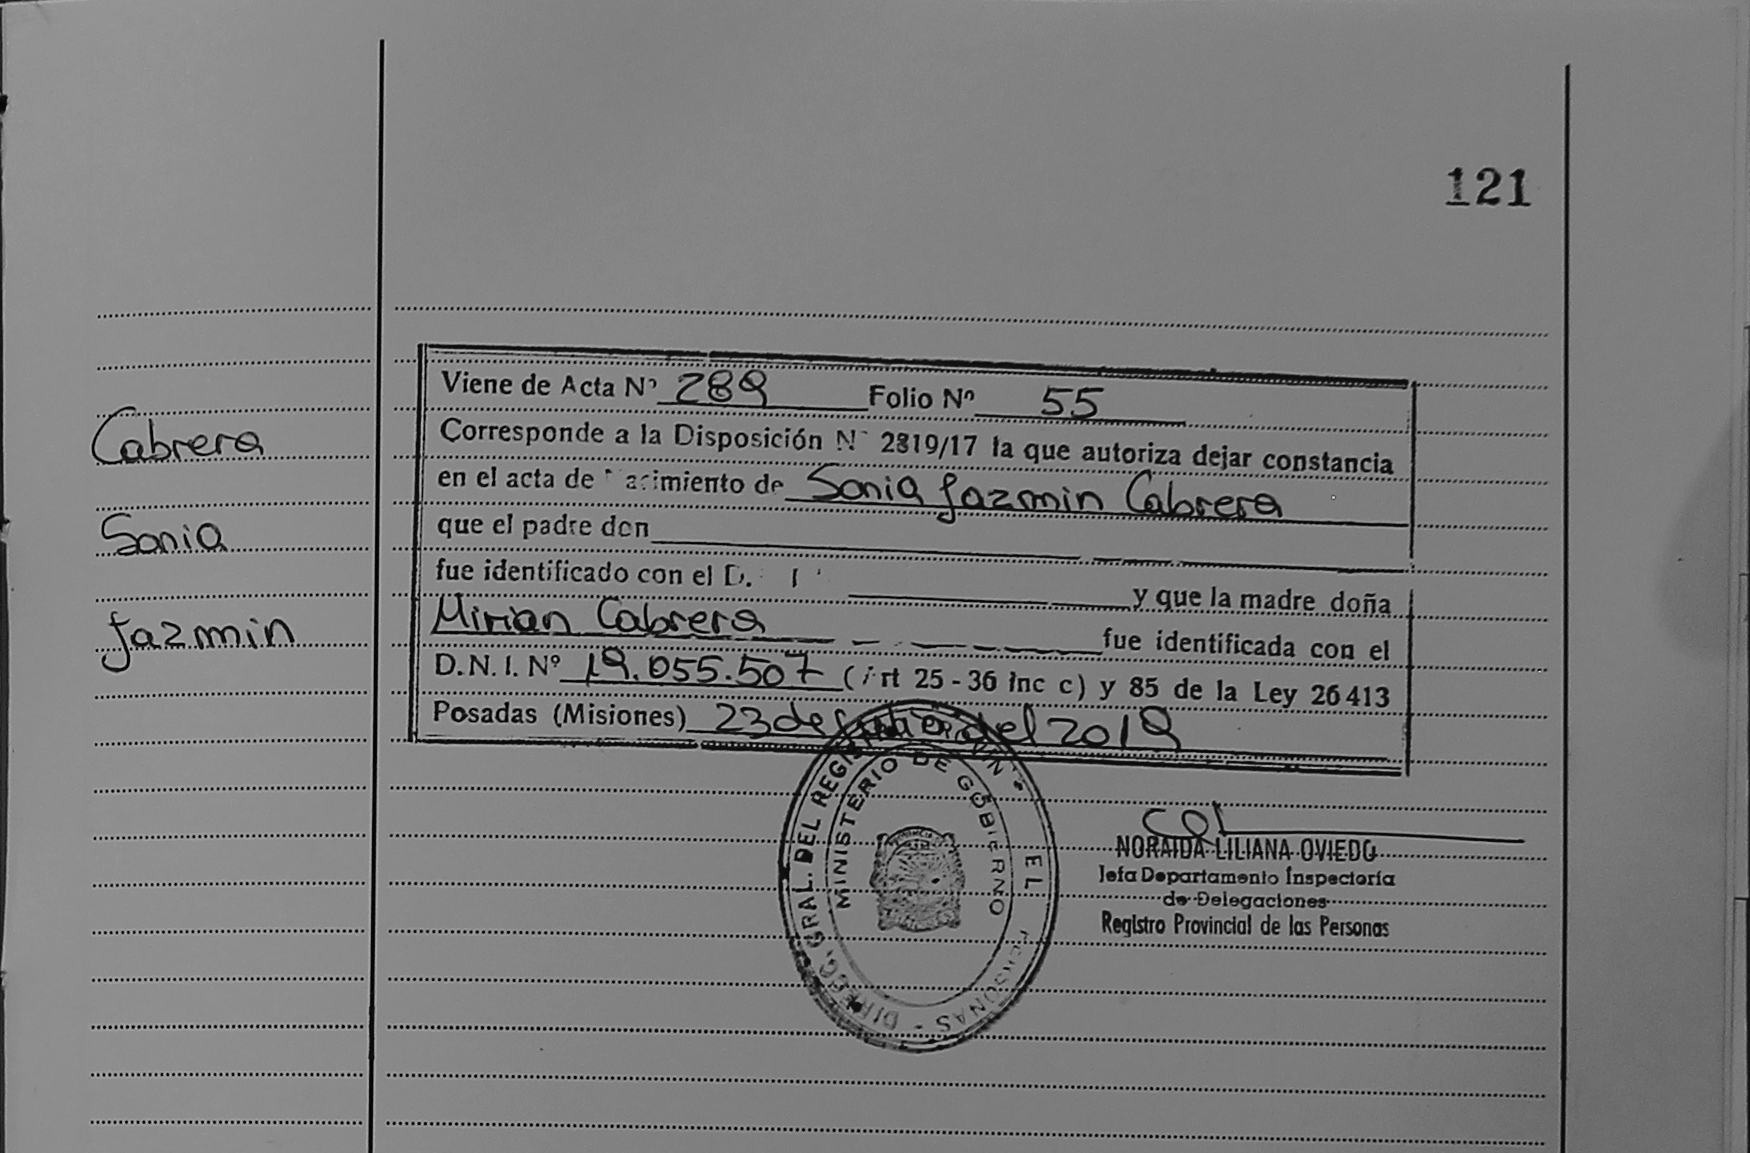 121
Viene de Acta Nº 289 Folio Nº 55
Corresponde a la Disposición Nº 2819/17 la que autoriza dejar constancia
Cabrera
en el acta de nacimiento de Sonia Jazmin Cabrera
Sonia
que el padre don
fue identificado con el D. y que la madre doña
Jazmin
Mirian Cabrera fue identificada con el
D.N.I. Nº 19.055.507 (Art 25-36 Inc c) y 85 de la Ley 26413
Posadas (Misiones) 23 de del 2019
DIRECC. GRAL. DEL REGIS EL PERSONAS
MINISTERIO DE GOBIERNO
NORAIDA LILIANA OVIEDO
Jefa Departamento Inspectoría
de Delegaciones
Registro Provincial de las Personas